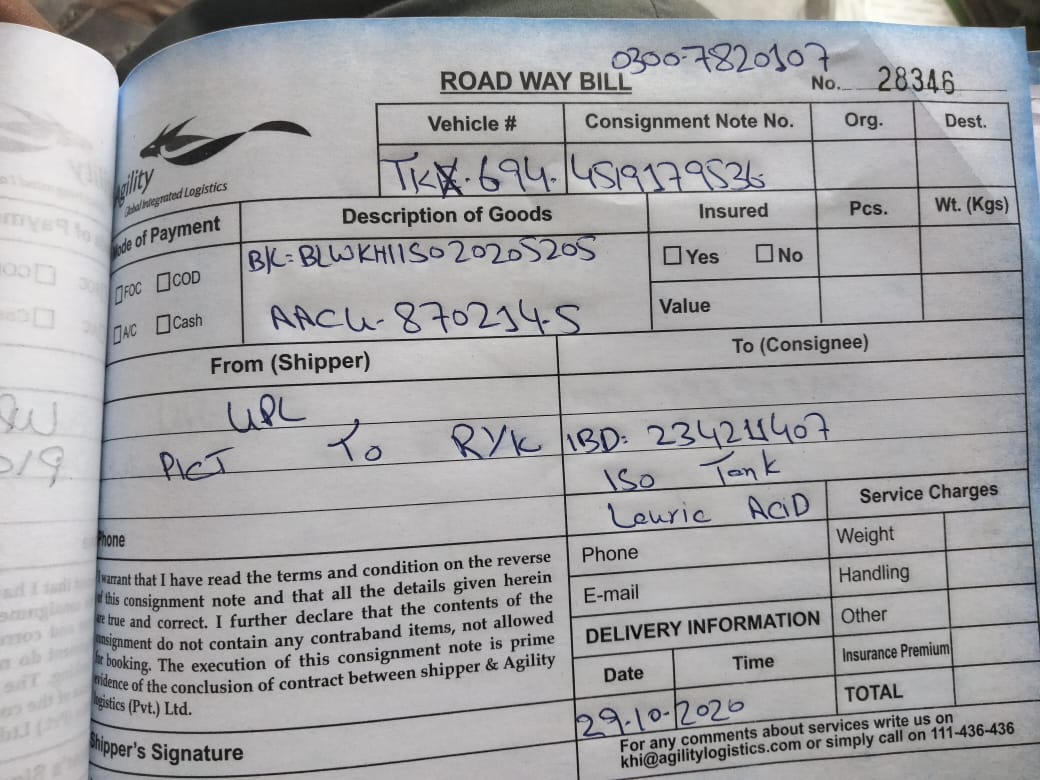 0300-7820107
ROAD WAY BILL
No. 28346
Agility
Global Integrated Logistics
Vehicle #
Consignment Note No.
Org.
Dest.
TKX.694.
4519179536
Mode of Payment
Description of Goods
Insured
Pcs.
Wt. (Kgs)
FOC COD
A/C Cash
B/L=BLWKHIISO20205205
AACU-870214-5
Yes No
Value
From (Shipper)
To (Consignee)
UPL
PICT To RYK
IBD: 234211407
ISO Tank
Lauric AciD
Phone
Phone
E-mail
Service Charges
Weight
Handling
Other
Insurance Premium
TOTAL
I warrant that I have read the terms and condition on the reverse
of this consignment note and that all the details given herein
are true and correct. I further declare that the contents of the
consignment do not contain any contraband items, not allowed
for booking. The execution of this consignment note is prime
evidence of the conclusion of contract between shipper & Agility
Logistics (Pvt.) Ltd.
DELIVERY INFORMATION
Date
Time
29-10-2020
Shipper's Signature
For any comments about services write us on
khi@agilitylogistics.com or simply call on 111-436-436